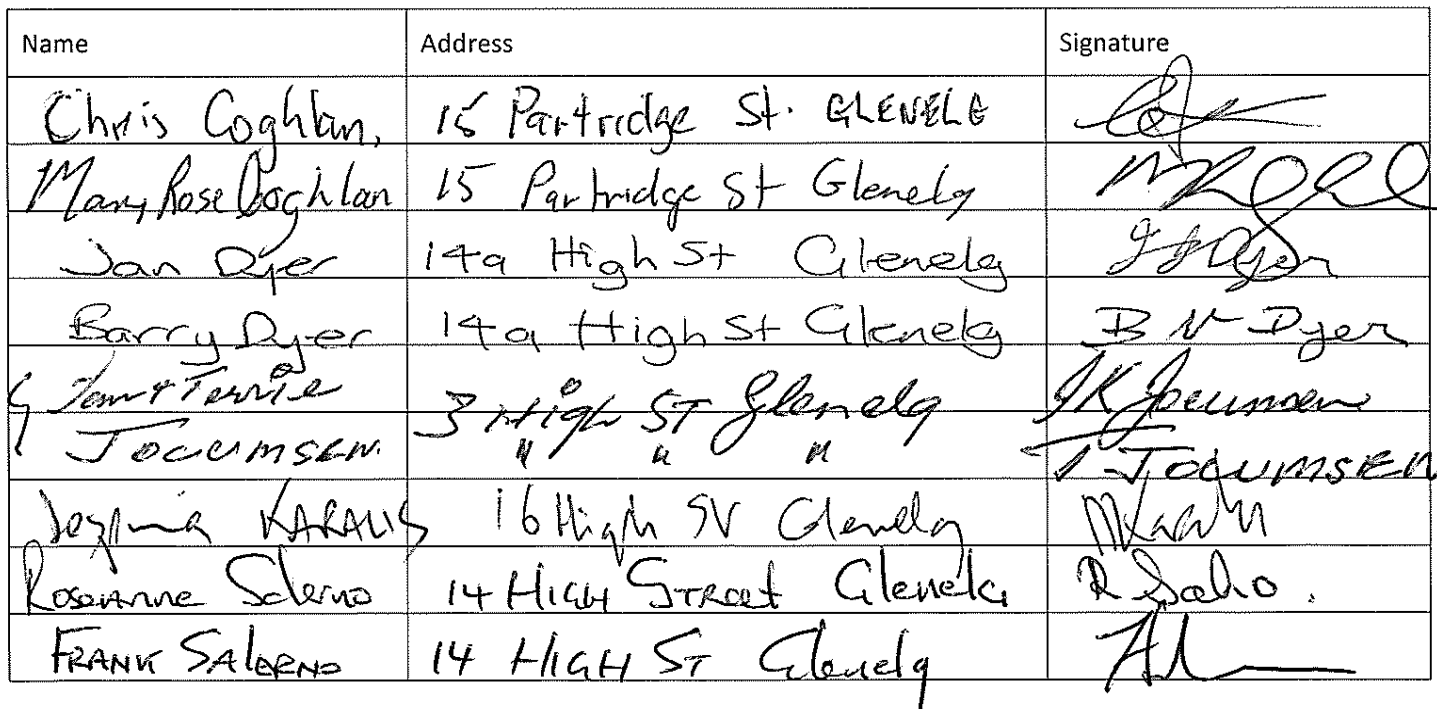 Name Address Signature
Chris Coghlan, 15 Partridge St. GLENELG
Mary Rose Coghlan 15 Partridge St Glenelg
Jan Dyer 14a High St Glenelg J J Dyer
Barry Dyer 14a High St Glenelg B N Dyer
& Terrie 3 High ST Glenelg JK Jocumsen
JOCUMSEN. " " " T JOCUMSEN
KARALIS 16 High St Glenelg
Roseanne Salerno 14 HIGH STREET Glenelg
FRANK SALERNO 14 HIGH ST Glenelg